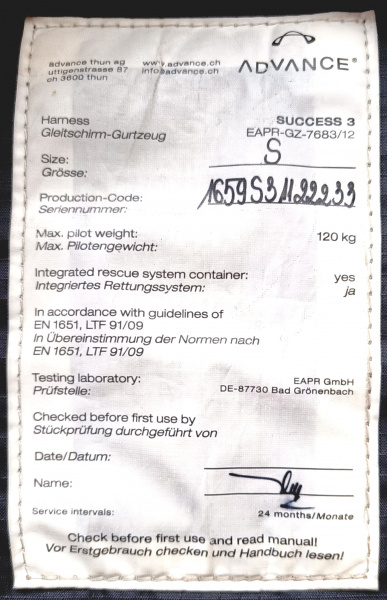 advance thun ag www.advance.ch
uttigenstrasse 87 info@advance.ch
ch 3600 thun
ADVANCE®
Harness SUCCESS 3
Gleitschirm-Gurtzeug EAPR-GZ-7683/12
Size: S
Grösse:
Production-Code: 1659S31122233
Seriennummer:
Max. pilot weight: 120 kg
Max. Pilotengewicht:
Integrated rescue system container: yes
Integriertes Rettungssystem: ja
In accordance with guidelines of
EN 1651, LTF 91/09
In Übereinstimmung der Normen nach
EN 1651, LTF 91/09
Testing laboratory: EAPR GmbH
Prüfstelle: DE-87730 Bad Grönenbach
Checked before first use by
Stückprüfung durchgeführt von
Date/Datum:
Name:
Service intervals: 24 months/Monate
Check before first use and read manual!
Vor Erstgebrauch checken und Handbuch lesen!